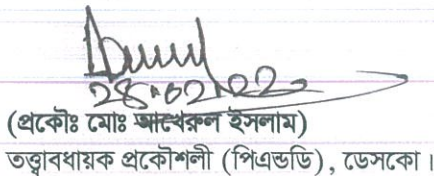 28.02.22
(প্রকৌঃ মোঃ আখেরুল ইসলাম)
তত্ত্বাবধায়ক প্রকৌশলী (পিএন্ডডি), ডেসকো।